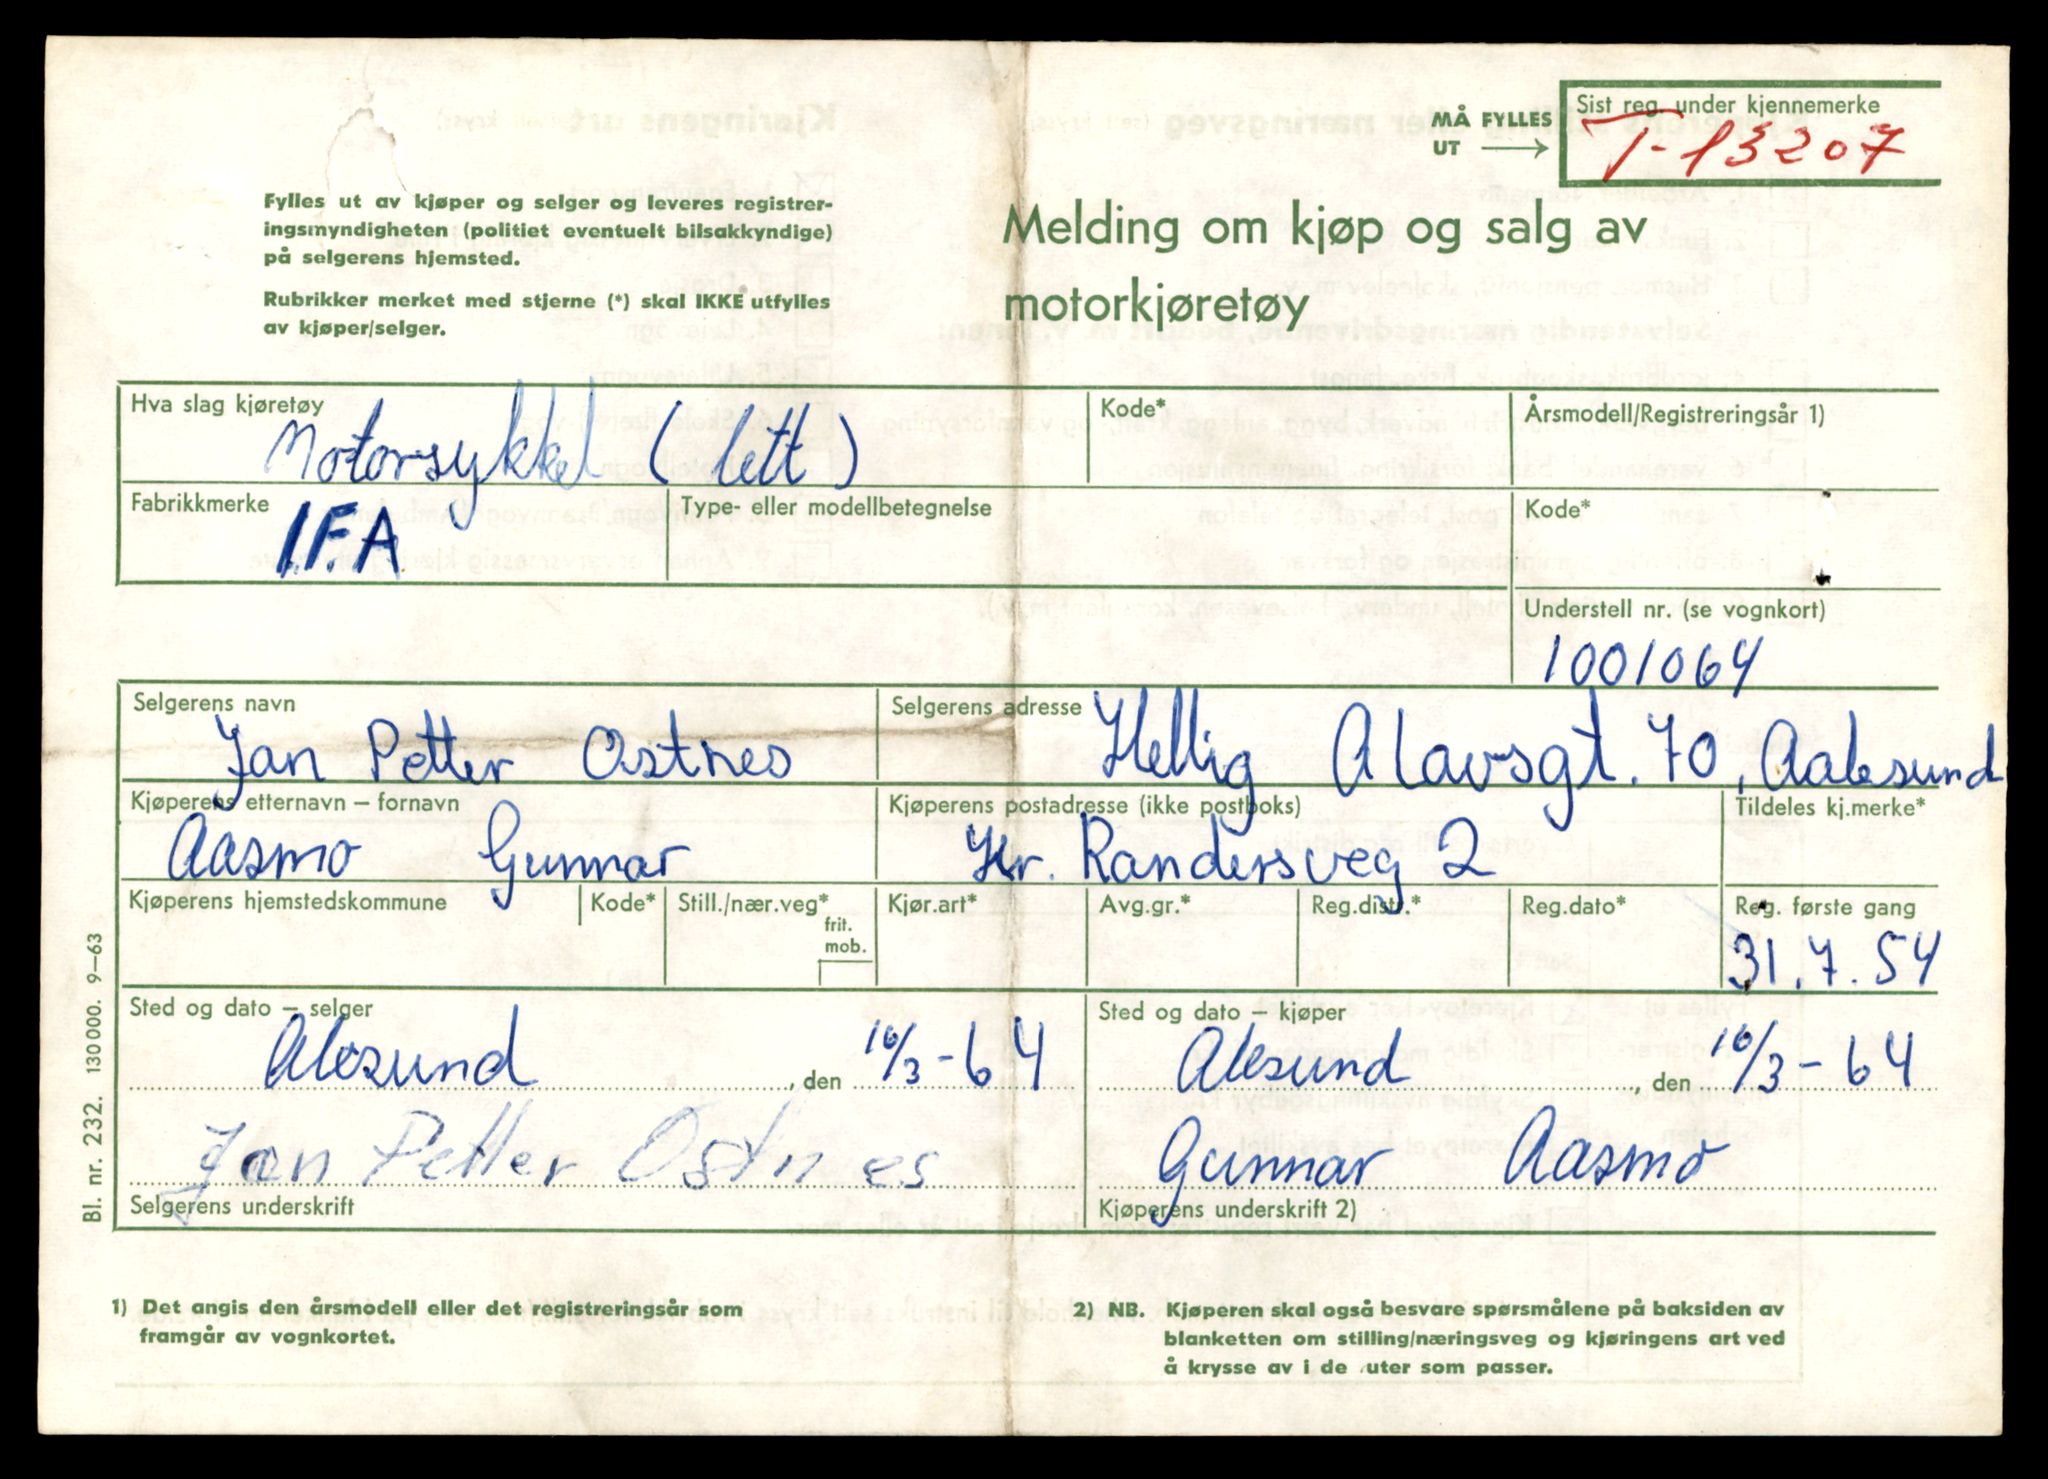 MÅ FYLLES UT
Sist reg. under kjennemerke
T-13207
Fylles ut av kjøper og selger og leveres registrer-
ingsmyndigheten (politiet eventuelt bilsakkyndige)
på selgerens hjemsted.
Rubrikker merket med stjerne (*) skal IKKE utfylles
av kjøper/selger.
Melding om kjøp og salg av
motorkjøretøy
Hva slag kjøretøy
Motorsykkel (lett)
Kode*
Årsmodell/Registreringsår 1)
Fabrikkmerke
I.F.A
Type- eller modellbetegnelse
Kode*
Understell nr. (se vognkort)
1001064
Selgerens navn
Jan Petter Ostnes
Selgerens adresse
Hellig Olavsgt. 70, Aalesund
Kjøperens etternavn – fornavn
Aasmo Gunnar
Kjøperens postadresse (ikke postboks)
Kr. Randersveg 2
Tildeles kj.merke*
Kjøperens hjemstedskommune
Kode*
Still./nær.veg*
frit.
mob.
Kjør.art*
Avg.gr.*
Reg.distr.*
Reg.dato*
Reg. første gang
31.7.54
Sted og dato – selger
Alesund, den 16/3-64
Sted og dato – kjøper
Alesund, den 16/3-64
Jan Petter Ostnes
Selgerens underskrift
Gunnar Aasmo
Kjøperens underskrift 2)
Bl. nr. 232. 130 000. 9–63
1) Det angis den årsmodell eller det registreringsår som
framgår av vognkortet.
2) NB. Kjøperen skal også besvare spørsmålene på baksiden av
blanketten om stilling/næringsveg og kjøringens art ved
å krysse av i de ruter som passer.